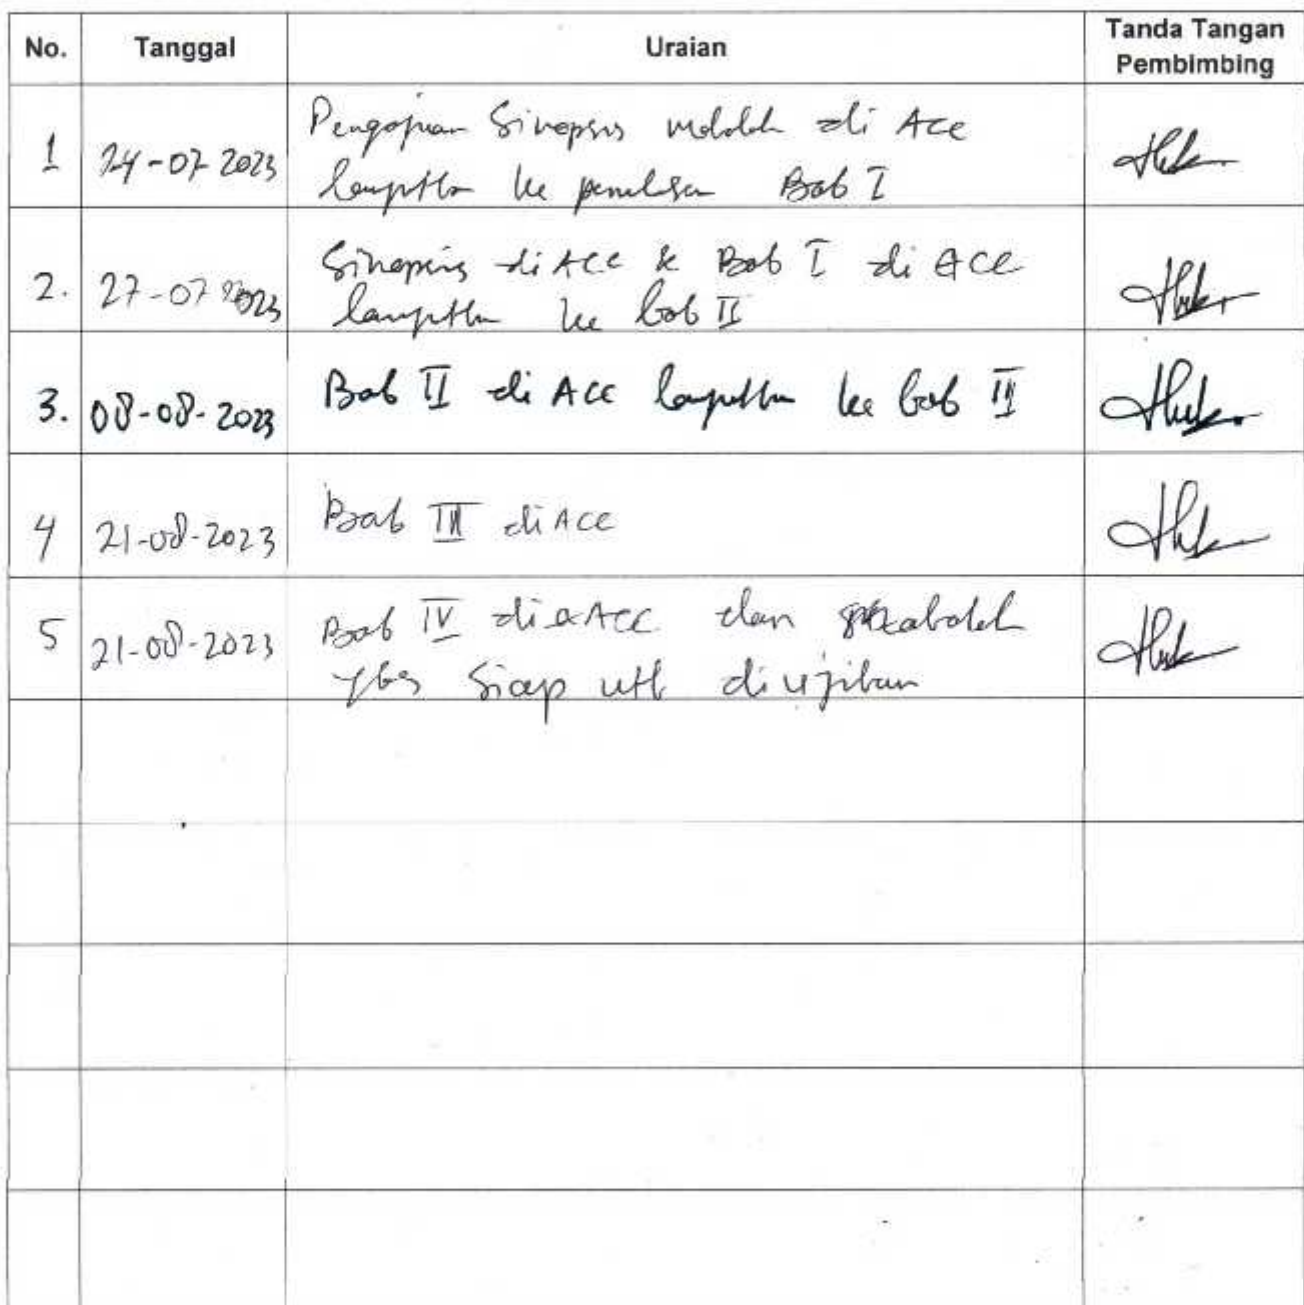 No. Tanggal Uraian Tanda Tangan Pembimbing
1 24-07 2023 Pengajuan Sinopsis di Acc
lanjutkan ke penulisan Bab I
2. 27-07 2023 Sinopsis di Acc & Bab I di Acc
lanjutkan ke bab II
3. 08-08-2023 Bab II di Acc lanjutkan ke bab III
4 21-08-2023 Bab III di Acc
5 21-08-2023 Bab IV di Acc dan
ybs siap utk diujikan